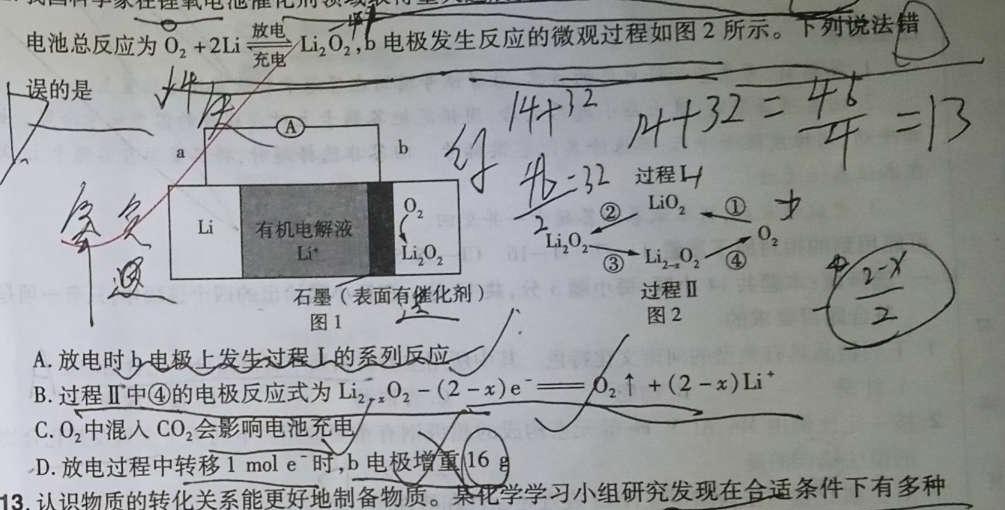 我国科学家在锂氧电池催化剂领域取得重大
电池总反应为 O₂+2Li ⇌(放电/充电) Li₂O₂,b 电极发生反应的微观过程如图 2 所示。下列说法错
误的是
14+32
14+32=46/4=13
46/2=32
A
a
b
Li
有机电解液
Li⁺
O₂
Li₂O₂
石墨(表面有催化剂)
图 1
过程Ⅰ
LiO₂
②
①
Li₂O₂
O₂
③
Li₂₋ₓO₂
④
过程Ⅱ
图 2
2-x/2
A. 放电时 b 电极上发生过程Ⅰ的系列反应
B. 过程Ⅱ中④的电极反应式为 Li₂₋ₓO₂-(2-x)e⁻═O₂↑+(2-x)Li⁺
C. O₂中混入 CO₂会影响电池充电
D. 放电过程中转移 1 mol e⁻时,b 电极增重 16 g
13. 认识物质的转化关系能更好地制备物质。某化学学习小组研究发现在合适条件下有多种